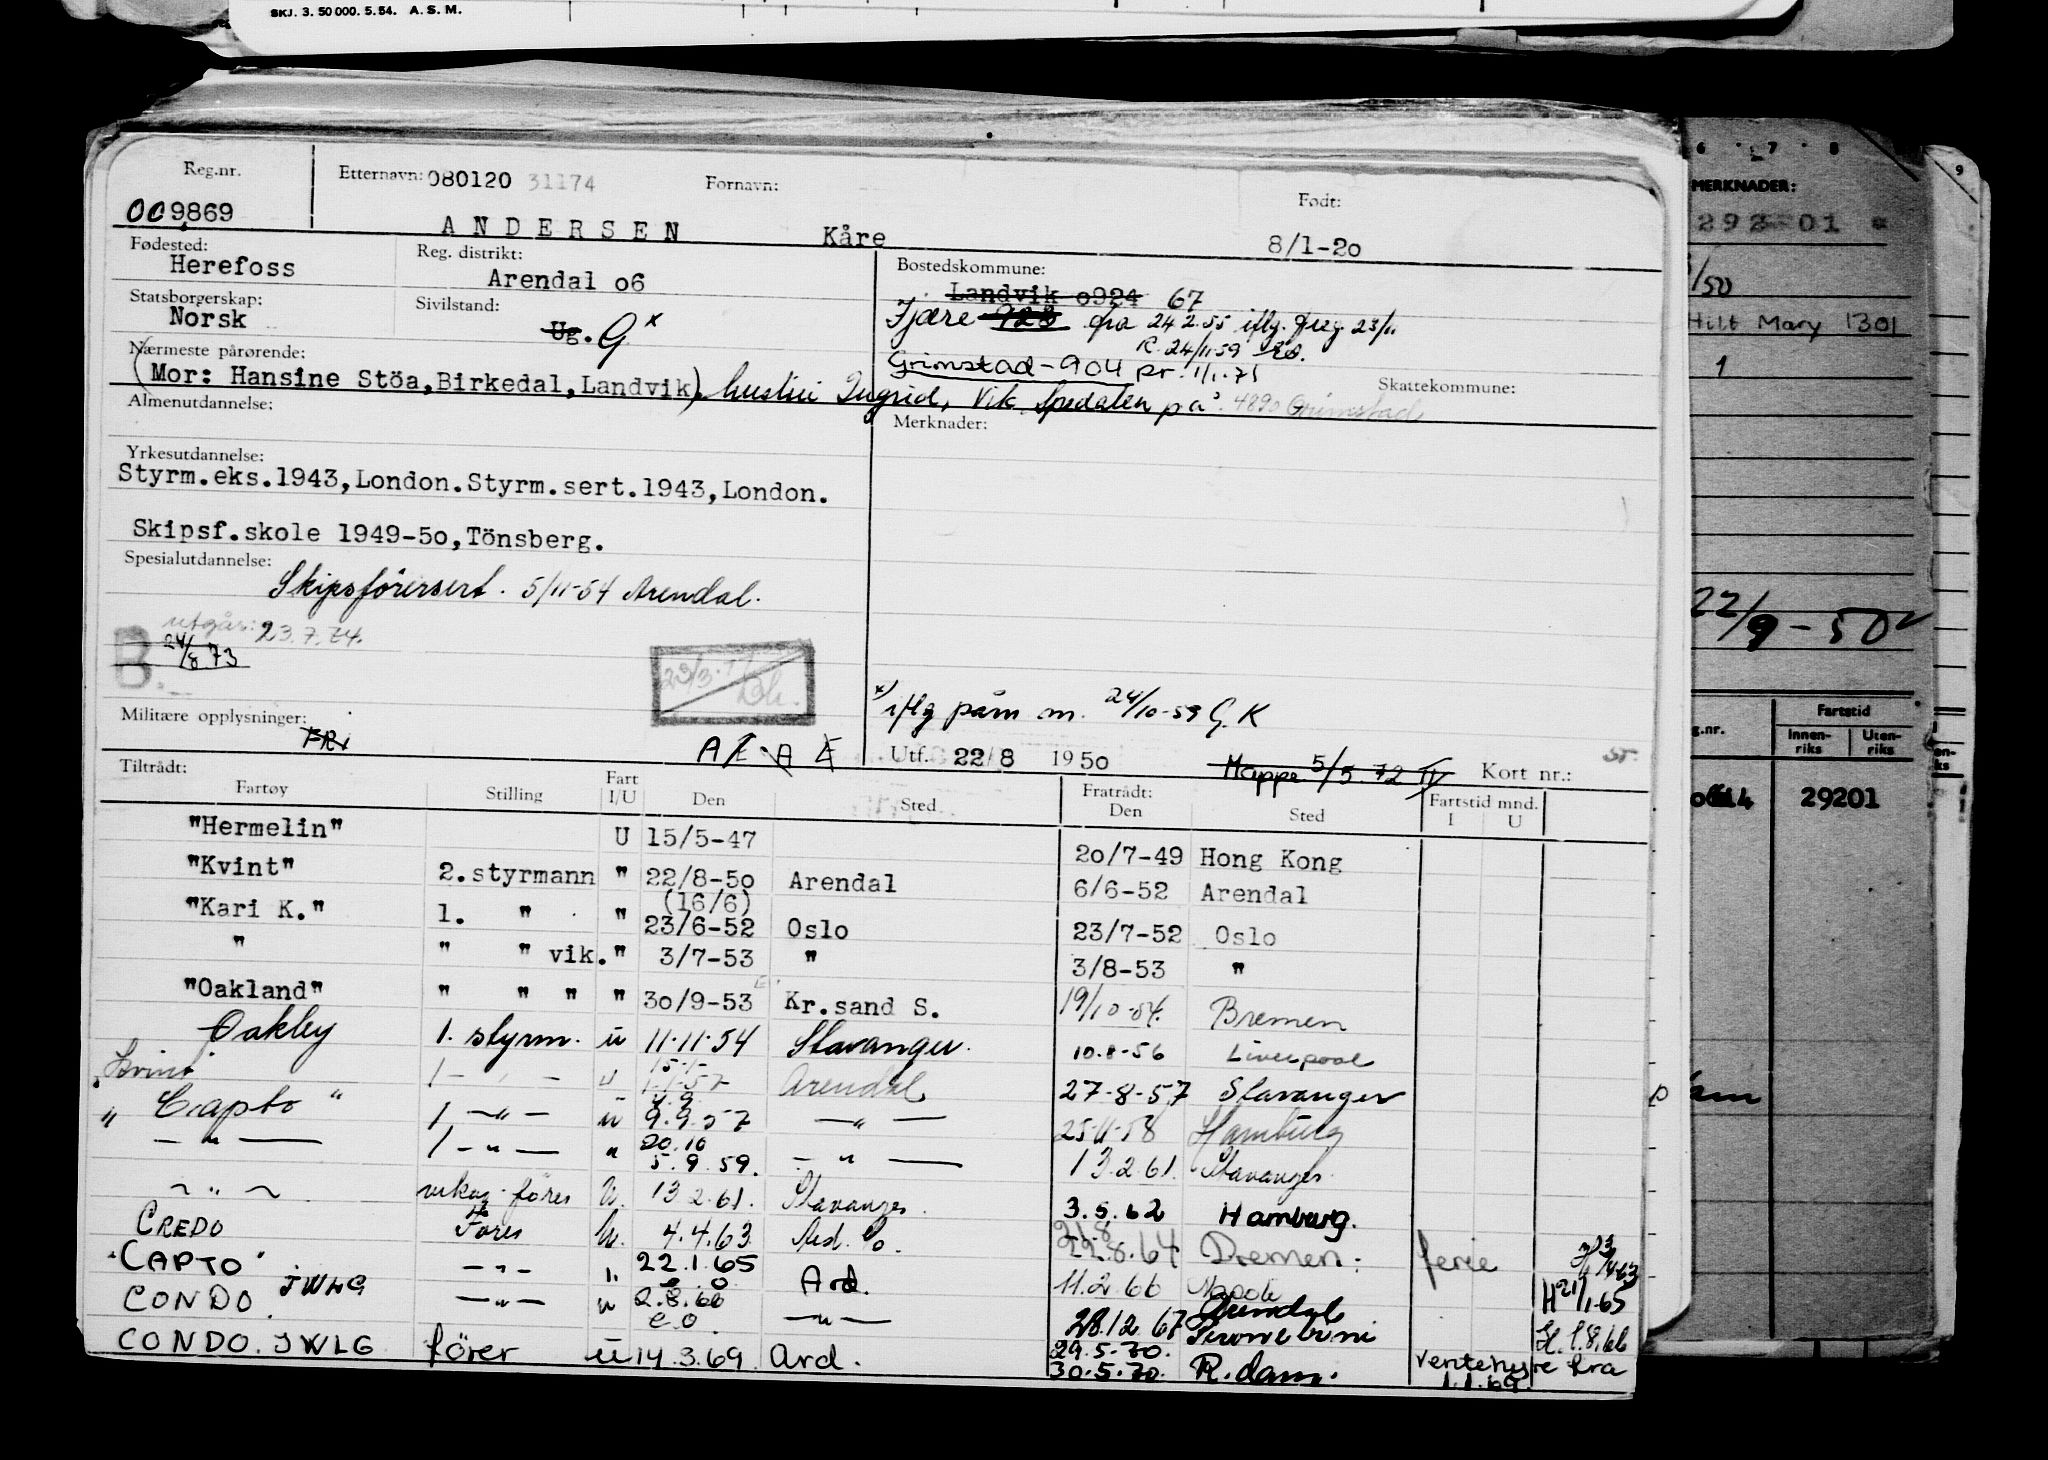 SKJ. 3. 50 000. 5. 54. A. S. M.
Reg.nr. Etternavn: 080120 31174 Fornavn: Født:
009869 ANDERSEN Kåre 8/1-20
Fødested: Reg. distrikt: Bostedskommune:
Herefoss Arendal 06 Landvik 0924 67
Statsborgerskap: Sivilstand: Fjære 923 fra 24.2.55 iflg. freg. 23/11
Norsk Ug. G x R. 24/11-59
Nærmeste pårørende: Grimstad - 904 pr. 1/1.71 Skattekommune:
(Mor: Hansine Stöa, Birkedal, Landvik) hustru Ingrid, Vik Spedalen på 4890 Grimstad
Almenutdannelse: Merknader:
Yrkesutdannelse:
Styrm.eks.1943,London.Styrm.sert.1943,London.
Skipsf.skole 1949-50,Tönsberg.
Spesialutdannelse:
Skipsförersert. 5/11-54 Arendal.
utgår: 23.7.74.
B. 24/8 73
29/3
x) iflg påm m. 24/10-59 G.K
Militære opplysninger: FRi
Utf. 22/8 1950 Mappe 5/5.72 Kort nr.:
Tiltrådt: Fratrådt: Fartstid mnd.
Fartøy Stilling Fart I/U Den Sted Den Sted I U
"Hermelin" U 15/5-47 20/7-49 Hong Kong
"Kvint" 2.styrmann " 22/8-50 Arendal 6/6-52 Arendal
(16/6)
"Kari K." 1. " " 23/6-52 Oslo 23/7-52 Oslo
" " " vik. " 3/7-53 " 3/8-53 "
"Oakland" " " " " 30/9-53 Kr.sand S. 19/10-54. Bremen
Oakley 1. styrm. u 11.11.54 Stavanger. 10.8-56 Liverpool
"Kvint" 1 - " - u 1.1.57 Arendal 27-8-57 Stavanger
"Capto" 1 - " - u 9.9.57 - " - 25-11-58 Hamburg
- " - 1 - " - " 20.10 5.9.59. - " - 13.2.61. Stavanger
- " - vikar. förer U. 13.2.61. Stavanger. 3.5.62 Hamburg.
CREDO Förer U. 4.4.63 21.8 22.8.64 Bremen: ferie
"CAPTO" - " - " 22.1.65 Ard. 11.2.66 H 21/1.65
CONDO JWLG - " - " 2.8.66 e.o. - " - 28.12.67 Arendal
CONDO. JWLG förer u 14.3.69 Ard. 29.5.70. 30.5.70. R.dam. ventehyre fra 1.1.69.
6 7 8 9
MERKNADER:
292 01
/50
Hilt Mary 1301
1
22/9-50
g.nr. Fartstid
Innen-riks Uten-riks
29201